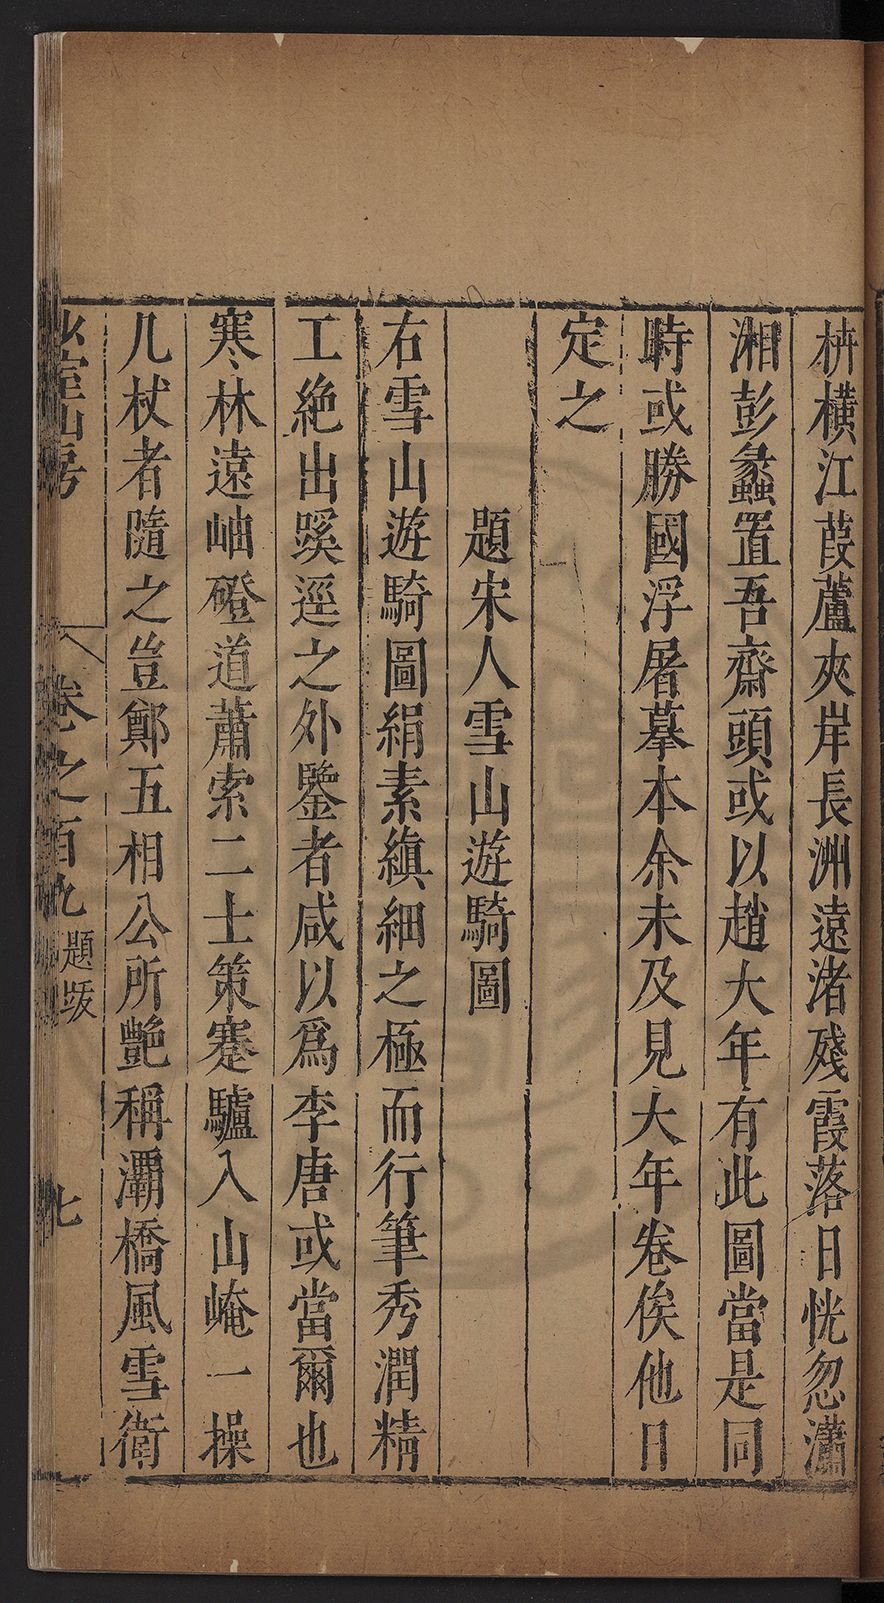 枿橫江葭蘆夾岸長洲遠渚殘霞落日恍忽瀟
湘彭蠡置吾齋頭或以趙大年有此圖當是同
時或勝國浮屠摹本余未及見大年卷俟他日
定之
題宋人雪山遊騎圖
右雪山遊騎圖絹素縝細之極而行筆秀潤精
工絶出蹊逕之外鑒者咸以爲李唐或當爾也
寒林遠岫磴道蕭索二士策蹇驢入山崦一操
几杖者隨之豈鄭五相公所艶稱灞橋風雪衛
少室山房
卷之百九
題䟦
七